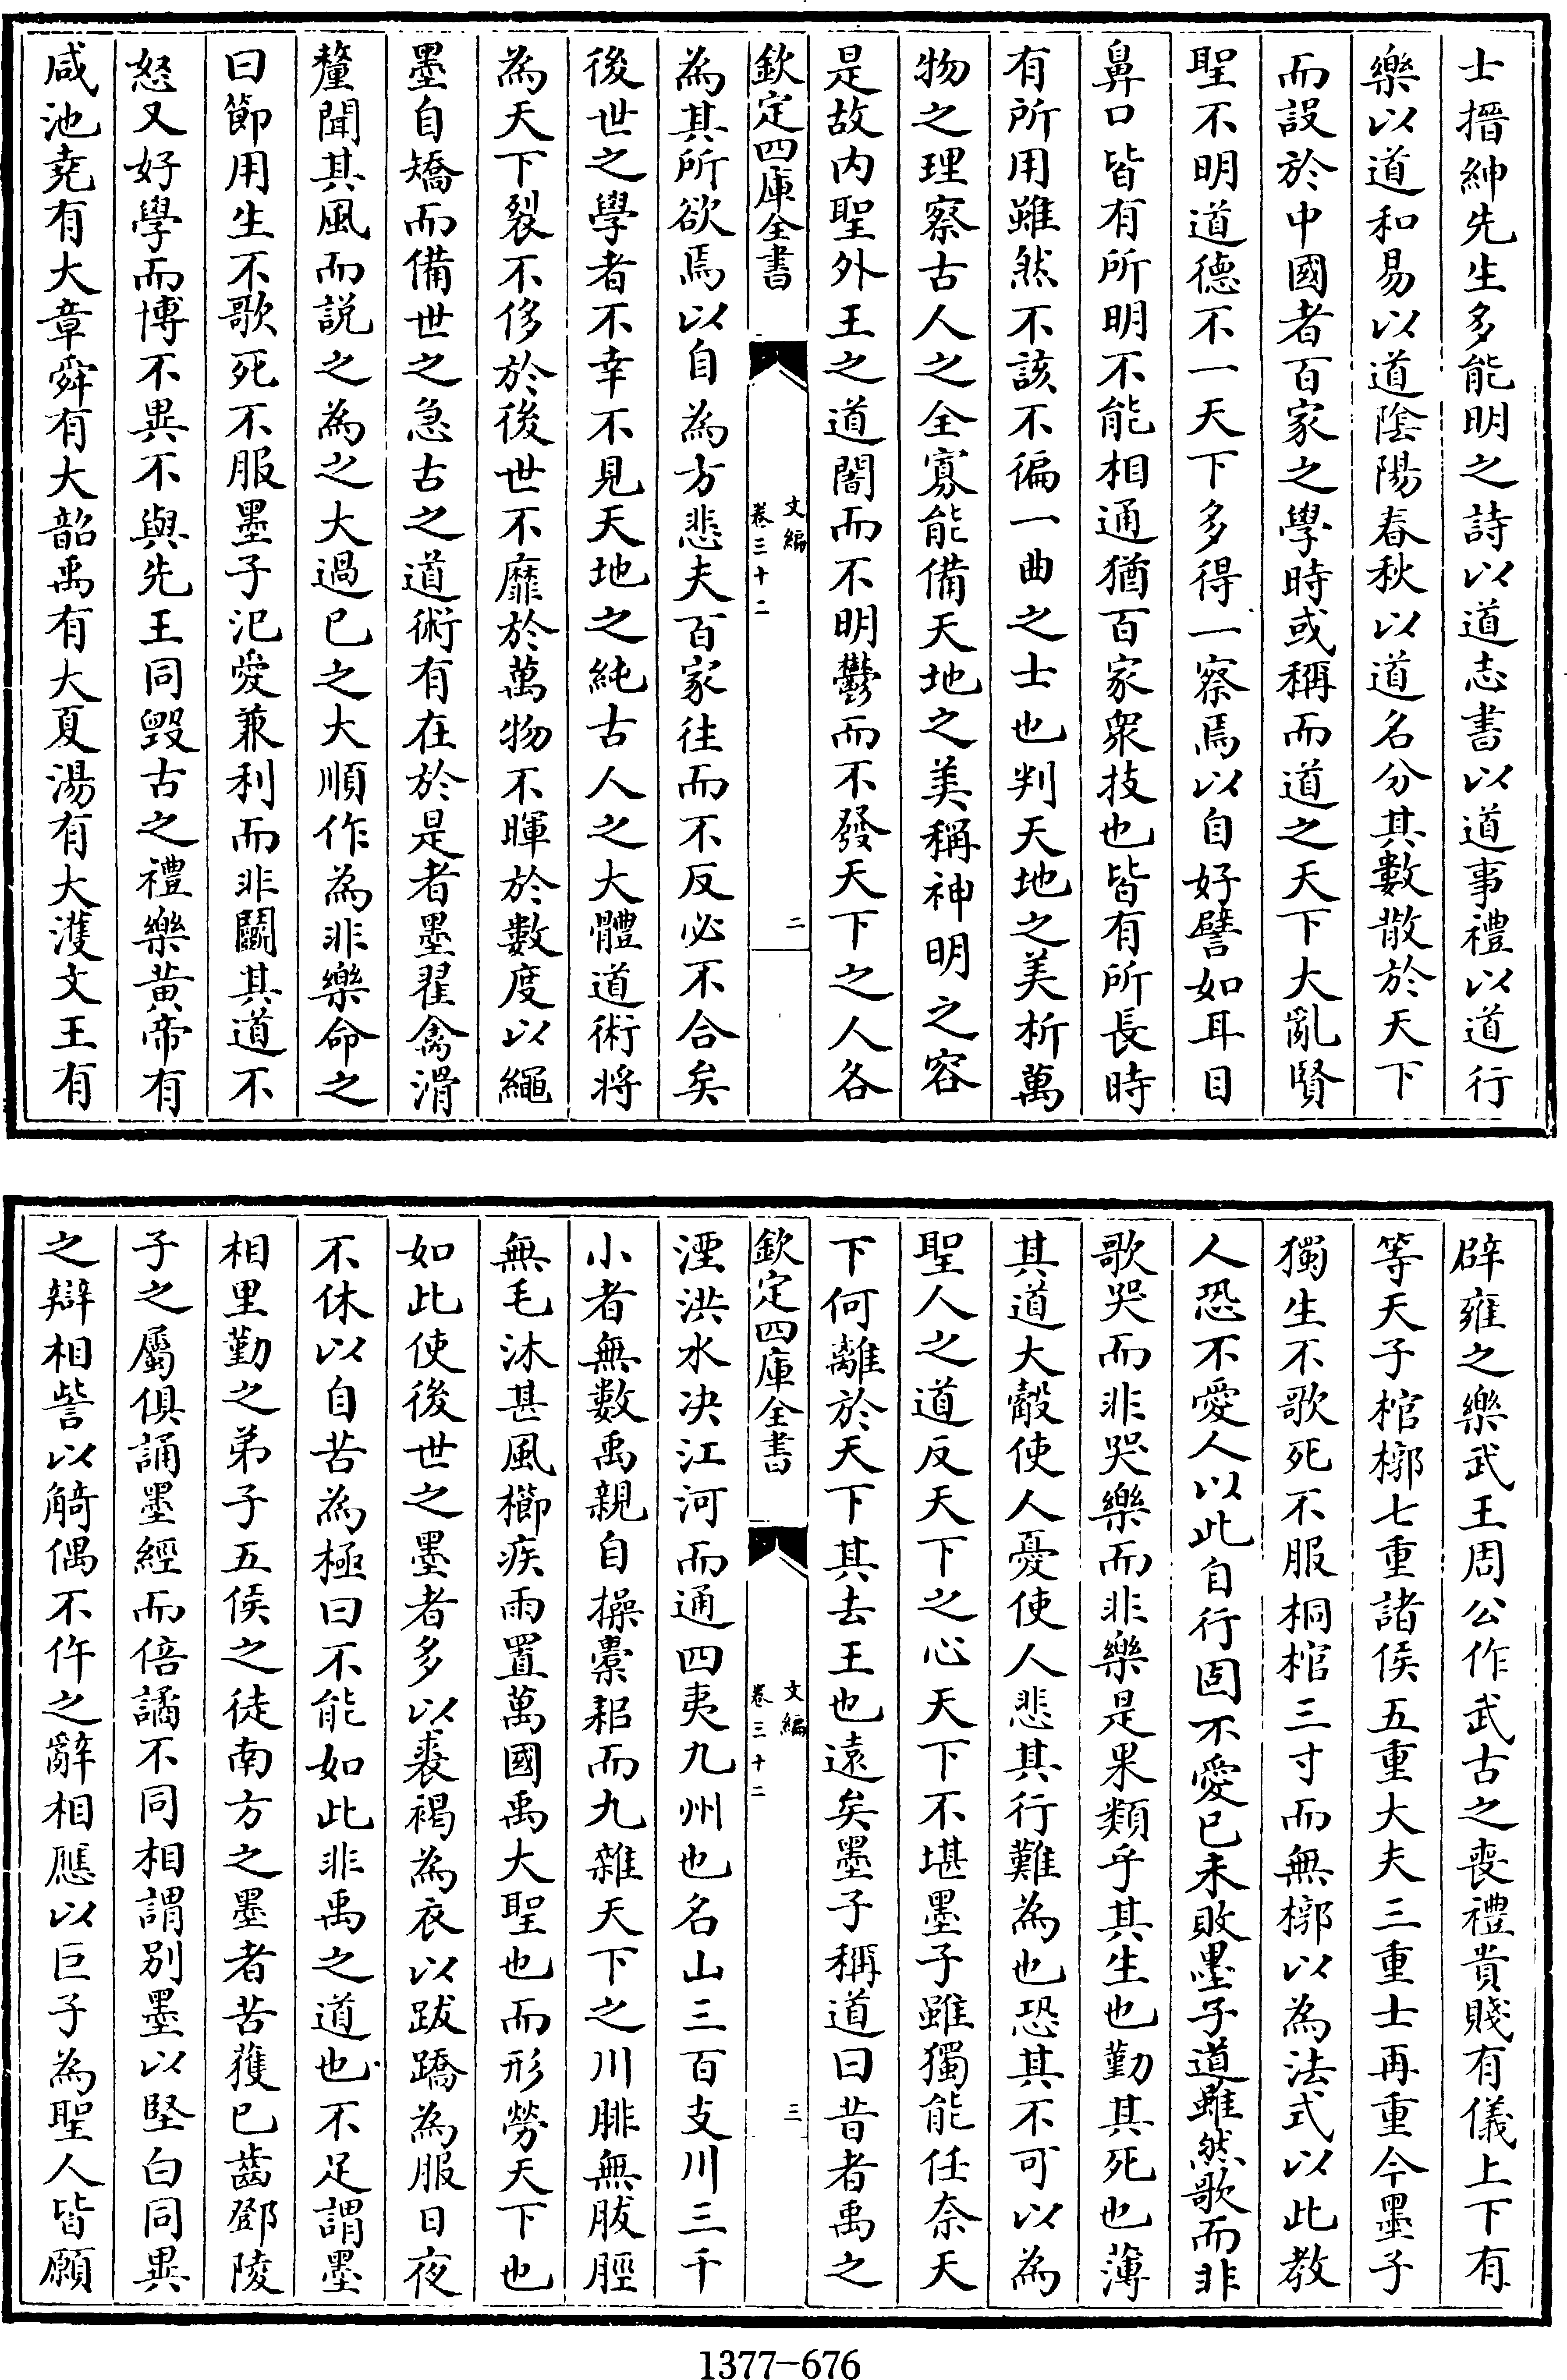 士搢紳先生多能明之詩以道志書以道事禮以道行
樂以道和易以道陰陽春秋以道名分其數散於天下
而設於中國者百家之學時或稱而道之天下大亂賢
聖不明道德不一天下多得一察焉以自好譬如耳目
鼻口皆有所明不能相通猶百家衆技也皆有所長時
有所用雖然不該不徧一曲之士也判天地之美析萬
物之理察古人之全寡能備天地之美稱神明之容
是故内聖外王之道闇而不明鬱而不發天下之人各
欽定四庫全書
文編
卷三十二
二
為其所欲焉以自為方悲夫百家往而不反必不合矣
後世之學者不幸不見天地之純古人之大體道術將
為天下裂不侈於後世不靡於萬物不暉於數度以繩
墨自矯而備世之急古之道術有在於是者墨翟禽滑
釐聞其風而説之為之大過已之大順作為非樂命之
曰節用生不歌死不服墨子汜愛兼利而非鬭其道不
怒又好學而博不異不與先王同毁古之禮樂黄帝有
咸池堯有大章舜有大韶禹有大夏湯有大濩文王有
辟雍之樂武王周公作武古之喪禮貴賤有儀上下有
等天子棺槨七重諸侯五重大夫三重士再重今墨子
獨生不歌死不服桐棺三寸而無槨以為法式以此教
人恐不愛人以此自行固不愛已未敗墨子道雖然歌而非
歌哭而非哭樂而非樂是果類乎其生也勤其死也薄
其道大觳使人憂使人悲其行難為也恐其不可以為
聖人之道反天下之心天下不堪墨子雖獨能任奈天
下何離於天下其去王也遠矣墨子稱道曰昔者禹之
欽定四庫全書
文編
卷三十二
三
湮洪水决江河而通四夷九州也名山三百支川三千
小者無數禹親自操橐耜而九雜天下之川腓無胈脛
無毛沐甚風櫛疾雨置萬國禹大聖也而形勞天下也
如此使後世之墨者多以裘褐為衣以跋蹻為服日夜
不休以自苦為極曰不能如此非禹之道也不足謂墨
相里勤之弟子五侯之徒南方之墨者苦獲已齒鄧陵
子之屬俱誦墨經而倍譎不同相謂别墨以堅白同異
之辯相訾以觭偶不仵之辭相應以巨子為聖人皆願
1377-676